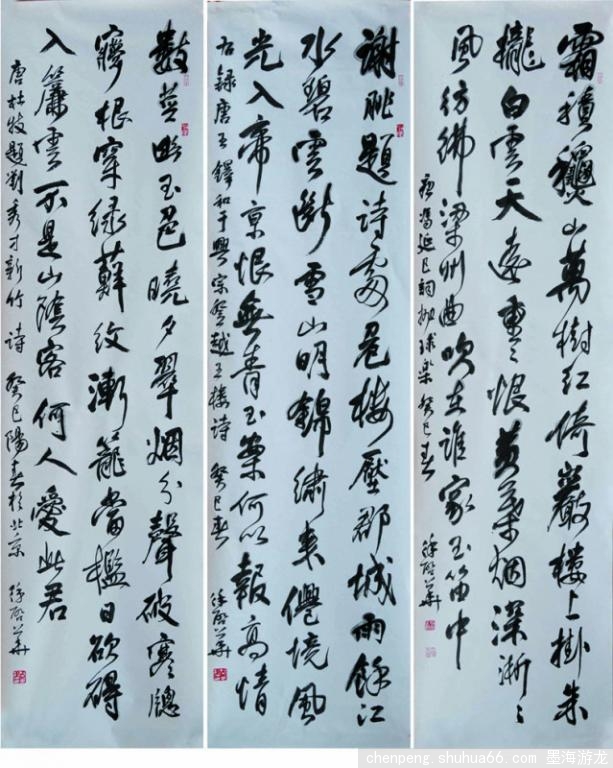 霜積龝山萬樹紅倚巖樓上掛朱
櫳白雲天遠重〻恨黃葉烟深淅〻
風彷彿梁州曲吹在誰家玉笛中
唐馮延巳詞拋球樂癸巳春 徐啟華
謝朓題詩處危樓壓郡城雨餘江
水碧雲斷雪山明錦繡來僊境風
光入帝京恨無青玉案何以報高情
右錄唐王鐸和于興宗登越王樓詩 癸巳春 徐啟華
數莖幽玉色曉夕翠烟分聲破寒牕
夢根穿綠蘚紋漸籠當檻日欲碍
入簾雲不是山陰客何人愛此君
唐杜牧題劉秀才新竹詩 癸巳陽春於北京 徐啟華
chenpeng.shuhua66.com 墨海游龙